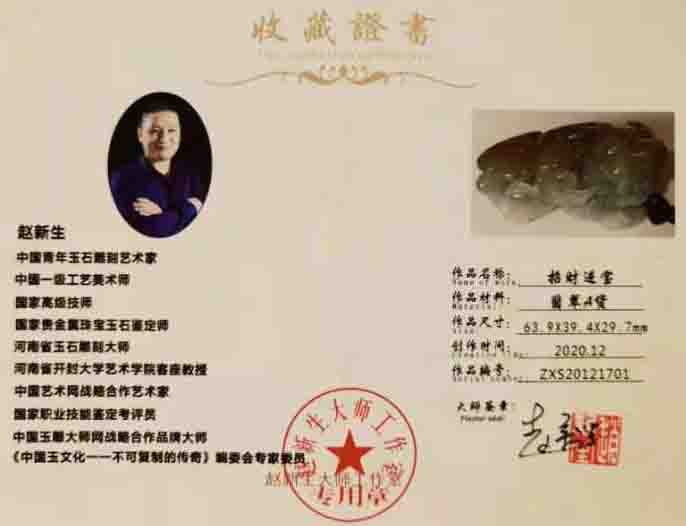 收藏證書
赵新生
中国青年玉石雕刻艺术家
中国一级工艺美术师
国家高级技师
国家贵金属珠宝玉石鉴定师
河南省玉石雕刻大师
河南省开封大学艺术学院客座教授
中国艺术网战略合作艺术家
国家职业技能鉴定考评员
中国玉雕大师网战略合作品牌大师
《中国玉文化一一不可复制的传奇》编委会专家委员
作品名称: 招财进宝
Name of Work:
作品材料: 翡翠A货
Material:
作品尺寸: 63.9X39.4X29.7mm
Size:
创作时间: 2020.12
作品编号: ZXS20121701
大师签章:
Master seal:
赵新生大师工作室
赵新生大师工作室
专用章